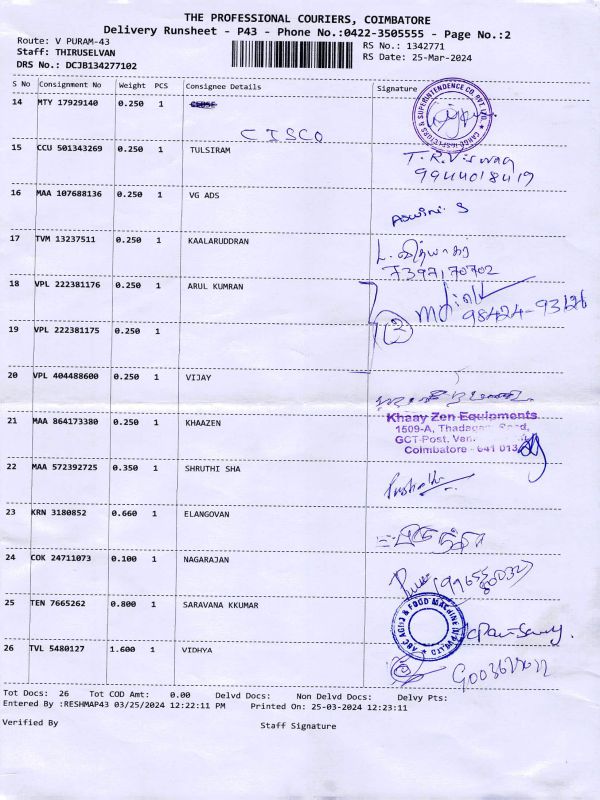 THE PROFESSIONAL COURIERS, COIMBATORE
Delivery Runsheet - P43 - Phone No.:0422-3505555 - Page No.:2
Route: V PURAM-43
RS No.: 1342771
Staff: THIRUSELVAN
RS Date: 25-Mar-2024
DRS No.: DCJB134277102
S No Consignment No Weight PCS Consignee Details Signature
14 MTY 17929140 0.250 1
CISCO
15 CCU 501343269 0.250 1 TULSIRAM
T.R.Viswag
9944018419
16 MAA 107688136 0.250 1 VG ADS
Aswini. S
17 TVM 13237511 0.250 1 KAALARUDDRAN
7397170702
18 VPL 222381176 0.250 1 ARUL KUMRAN
2
98424-93626
19 VPL 222381175 0.250 1
20 VPL 404488600 0.250 1 VIJAY
21 MAA 864173380 0.250 1 KHAAZEN
Khaay Zen Equipments
1509-A, Thadagam Road,
GCT-Post,
Coimbatore - 641 013
22 MAA 572392725 0.350 1 SHRUTHI SHA
23 KRN 3180852 0.660 1 ELANGOVAN
24 COK 24711073 0.100 1 NAGARAJAN
25 TEN 7665262 0.800 1 SARAVANA KKUMAR
26 TVL 5480127 1.600 1 VIDHYA
Tot Docs: 26 Tot COD Amt: 0.00 Delvd Docs: Non Delvd Docs: Delvy Pts:
Entered By :RESHMAP43 03/25/2024 12:22:11 PM Printed On: 25-03-2024 12:23:11
Verified By Staff Signature